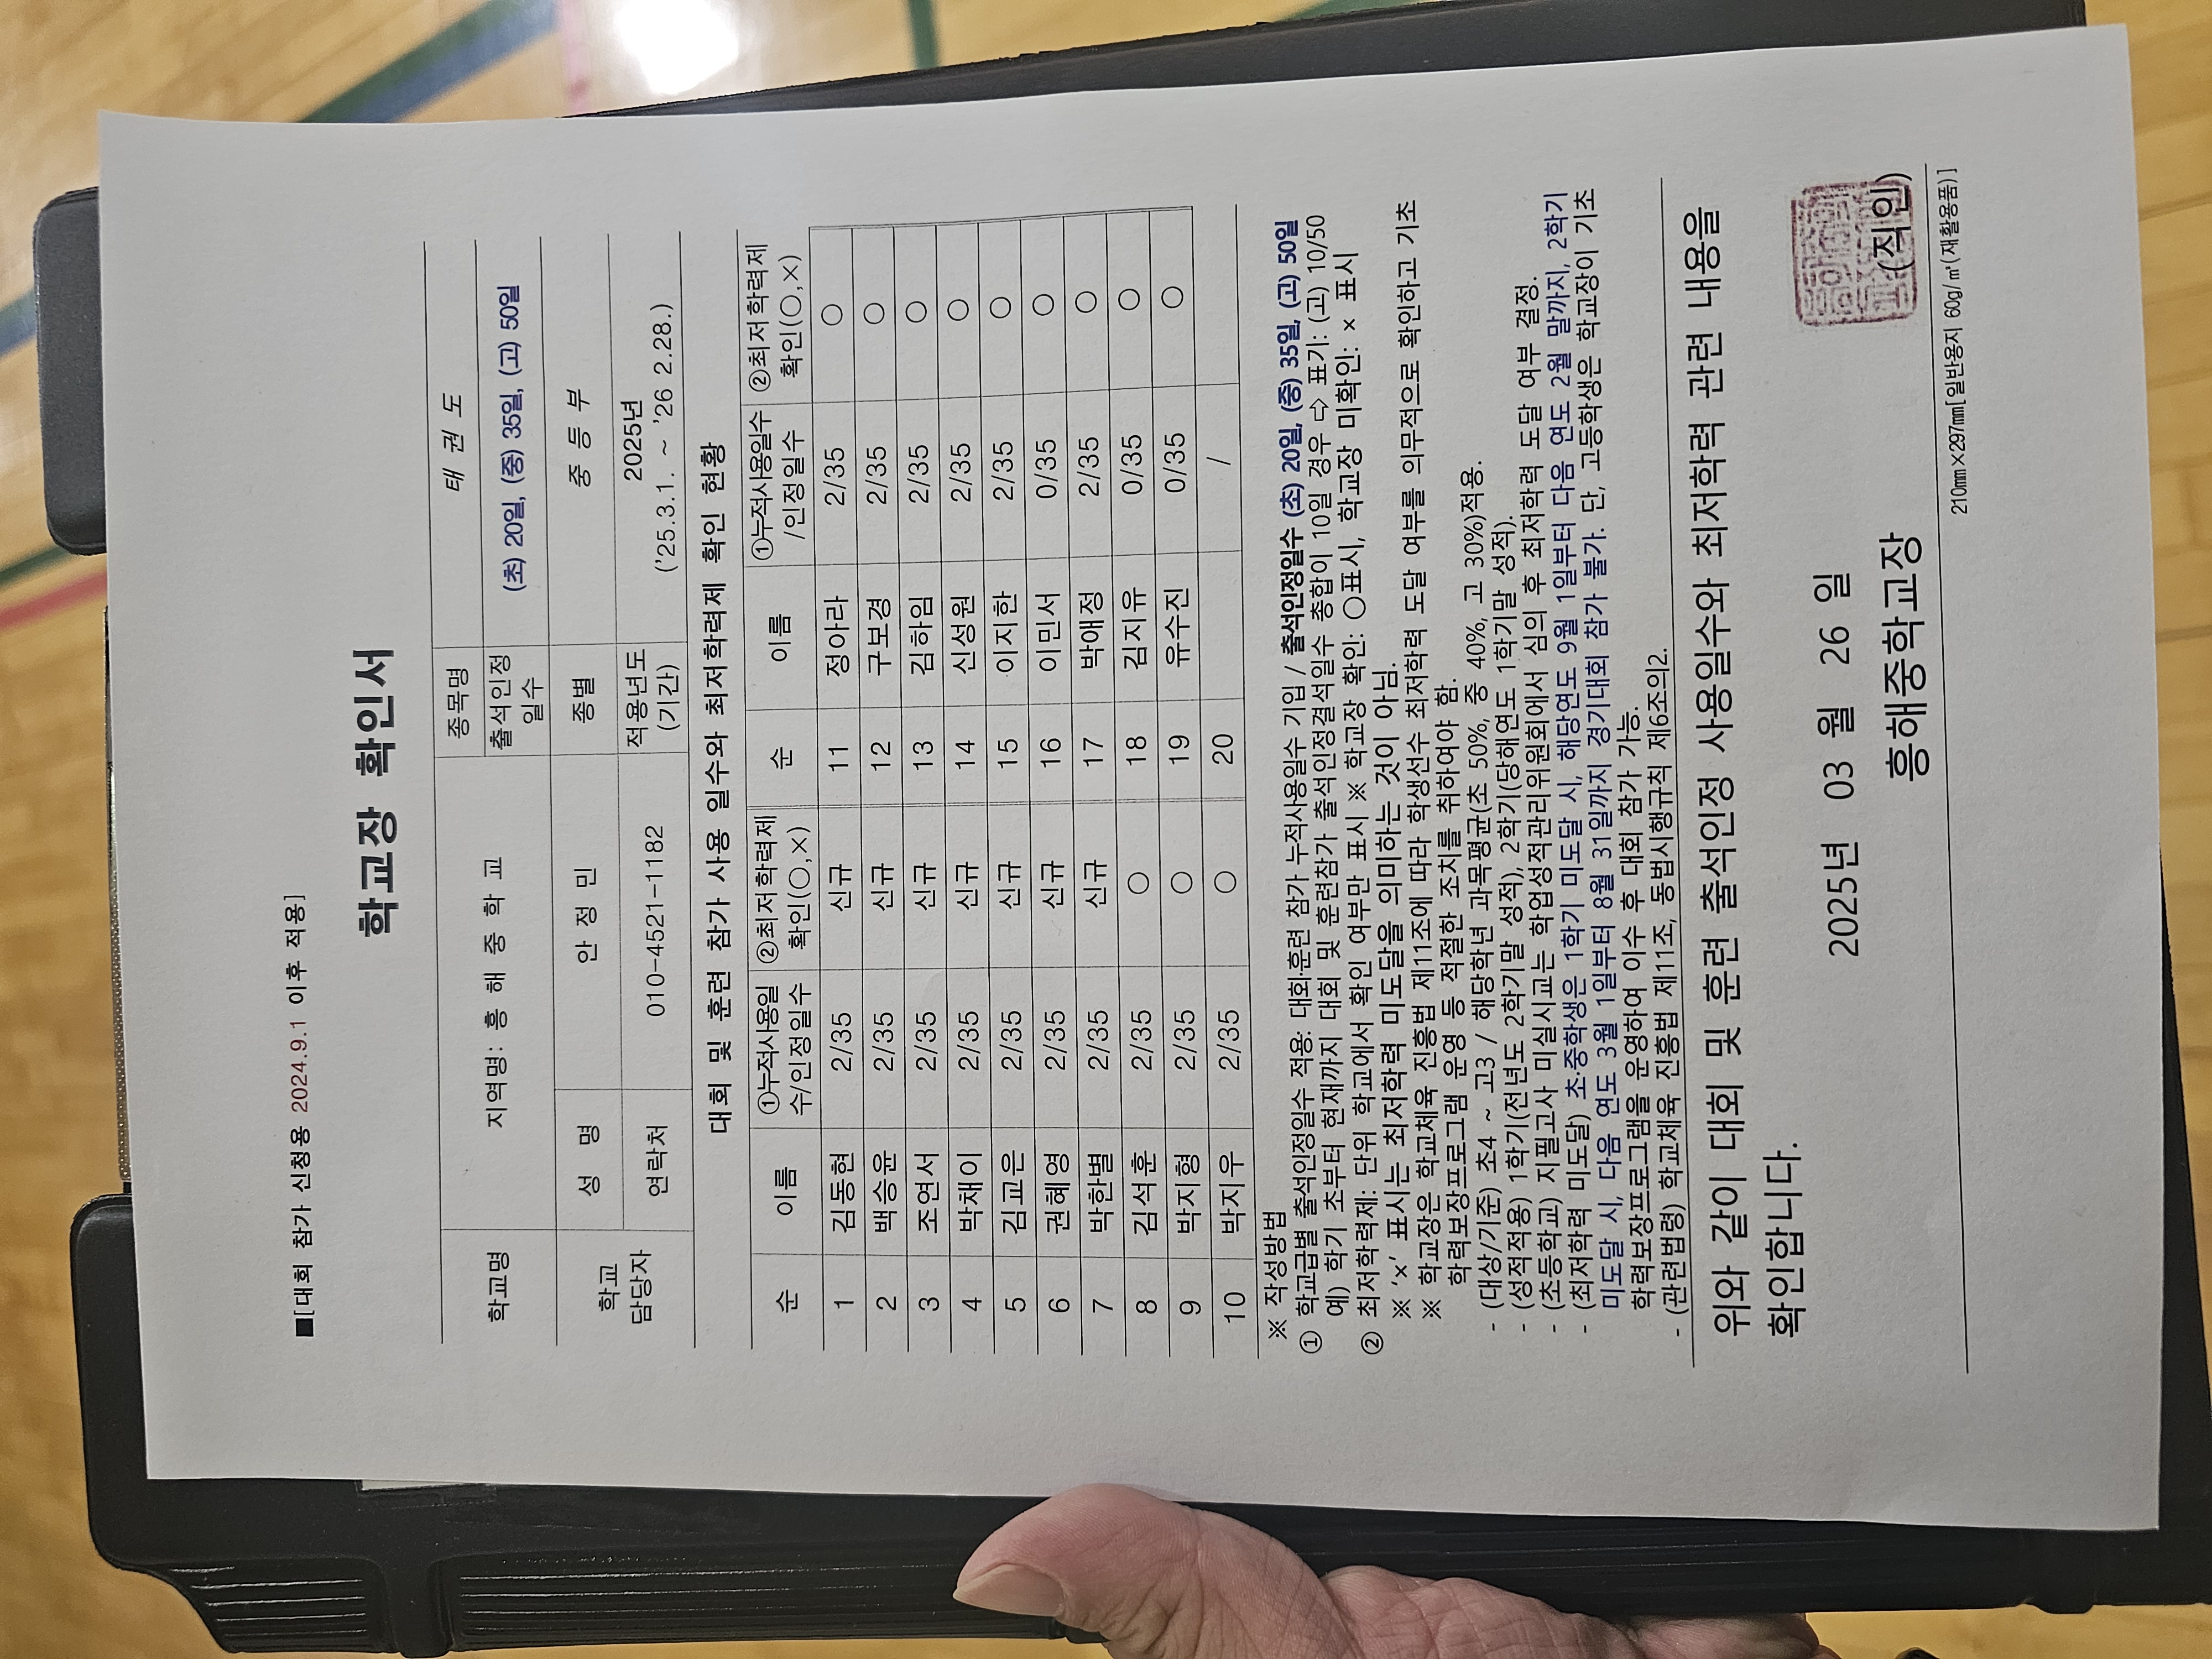 ■[대회 참가 신청용 2024.9.1 이후 적용]
학교장 확인서
학교명 지역명: 흥 해 중 학 교 종목명 태 권 도
출석인정 일수 (초) 20일, (중) 35일, (고) 50일
학교 담당자 성 명 안 정 민 종별 중 등 부
연락처 010-4521-1182 적용년도 (기간) 2025년 ('25.3.1. ~ '26 2.28.)
대회 및 훈련 참가 사용 일수와 최저학력제 확인 현황
순 이름 ①누적사용일수/인정일수 ②최저학력제 확인(○,×) 순 이름 ①누적사용일수/인정일수 ②최저학력제 확인(○,×)
1 김동현 2/35 신규 11 정아라 2/35 ○
2 백승윤 2/35 신규 12 구보경 2/35 ○
3 조연서 2/35 신규 13 김하임 2/35 ○
4 박채이 2/35 신규 14 신성원 2/35 ○
5 김교은 2/35 신규 15 이지한 2/35 ○
6 권혜영 2/35 신규 16 이민서 0/35 ○
7 박한별 2/35 신규 17 박애정 2/35 ○
8 김석훈 2/35 ○ 18 김지유 0/35 ○
9 박지형 2/35 ○ 19 유수진 0/35 ○
10 박지우 2/35 ○ 20 /
※ 작성방법
① 학교급별 출석인정일수 적용: 대회·훈련 참가 누적사용일수 기입 / 출석인정일수 (초) 20일, (중) 35일, (고) 50일
예) 학기 초부터 현재까지 대회 및 훈련참가 출석인정결석일수 총합이 10일 경우 ⇨ 표기: (고) 10/50
② 최저학력제: 단위 학교에서 확인 여부만 표시 ※ 학교장 확인: ○표시, 학교장 미확인: × 표시
※ '×' 표시는 최저학력 미도달을 의미하는 것이 아님.
※ 학교장은 학교체육 진흥법 제11조에 따라 학생선수 최저학력 도달 여부를 의무적으로 확인하고 기초
학력보장프로그램 운영 등 적절한 조치를 취하여야 함.
- (대상/기준) 초4 ~ 고3 / 해당학년 과목평균(초 50%, 중 40%, 고 30%)적용.
- (성적적용) 1학기(전년도 2학기말 성적), 2학기(당해연도 1학기말 성적).
- (초등학교) 지필고사 미실시교는 학업성적관리위원회에서 심의 후 최저학력 도달 여부 결정.
- (최저학력 미도달) 초·중학생은 1학기 미도달 시, 해당연도 9월 1일부터 다음 연도 2월 말까지, 2학기
미도달 시, 다음 연도 3월 1일부터 8월 31일까지 경기대회 참가 불가. 단, 고등학생은 학교장이 기초
학력보장프로그램을 운영하여 이수 후 대회 참가 가능.
- (관련법령) 학교체육 진흥법 제11조, 동법시행규칙 제6조의2.
위와 같이 대회 및 훈련 출석인정 사용일수와 최저학력 관련 내용을
확인합니다.
2025년 03 월 26 일
흥해중학교장 (직인)
210㎜×297㎜[일반용지 60g/㎡(재활용품)]